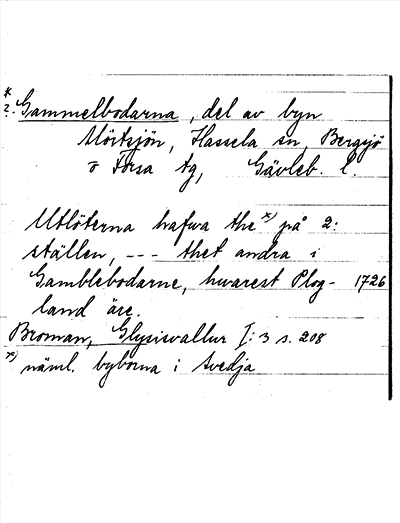 *
?. Gammelbodarna, del av byn
Moitsjön, Hassela sn, Bergsjö
o Forsa tg, Gävleb. l.
Utlöterna hafwa the x) på 2:
ställen, --- thet andra i
Gamblebodarne, hwarest Plog- 1726
land äre.
Broman, Glysisvallur I:3 s. 208
x) näml. byborna i Svedja